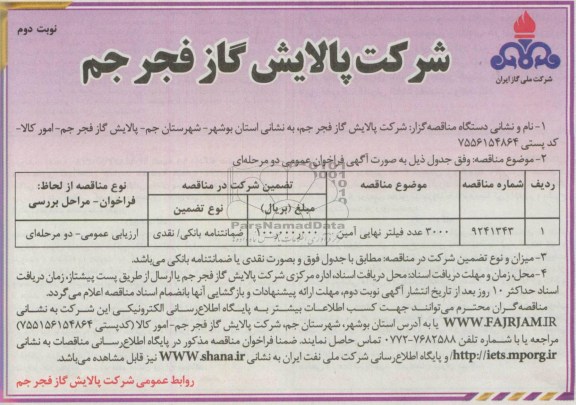 نوبت دوم
شرکت ملی گاز ایران
شرکت پالایش گاز فجر جم
۱- نام و نشانی دستگاه مناقصه‌گزار: شرکت پالایش گاز فجر جم، به نشانی استان بوشهر- شهرستان جم- پالایش گاز فجر جم- امور کالا-
کد پستی ۷۵۵۶۱۵۴۸۶۴
۲- موضوع مناقصه: وفق جدول ذیل به صورت آگهی فراخوان عمومی دو مرحله‌ای
ردیف شماره مناقصه موضوع مناقصه تضمین شرکت در مناقصه نوع مناقصه از لحاظ:
مبلغ (بریال) نوع تضمین فراخوان- مراحل بررسی
۱ ۹۲۴۱۳۴۳ ۳۰۰۰ عدد فیلتر نهایی آمین ۱۰۰,۰۰۰,۰۰۰ ضمانتنامه بانکی/ نقدی ارزیابی عمومی- دو مرحله‌ای
ParsNamadData
۳- میزان و نوع تضمین شرکت در مناقصه: مطابق با جدول فوق و بصورت نقدی یا ضمانتنامه بانکی می‌باشد.
۴- محل، زمان و مهلت دریافت اسناد: محل دریافت اسناد، اداره مرکزی شرکت پالایش گاز فجر جم یا ارسال از طریق پست پیشتاز، زمان دریافت
اسناد حداکثر ۱۰ روز بعد از تاریخ انتشار آگهی نوبت دوم، مهلت ارائه پیشنهادات و بازگشایی آنها بانضمام اسناد مناقصه اعلام می‌گردد.
مناقصه‌گران محترم می‌توانند جهت کسب اطلاعات بیشتر به پایگاه اطلاع‌رسانی الکترونیکی این شرکت به نشانی
WWW.FAJRJAM.IR یا به آدرس استان بوشهر، شهرستان جم، شرکت پالایش گاز فجر جم- امور کالا (کدپستی ۷۵۵۶۱۵۴۸۶۴)
مراجعه یا با شماره تلفن ۷۶۸۲۵۸۸-۰۷۷۲ تماس حاصل نمایند. ضمنا فراخوان مناقصه مذکور در پایگاه اطلاع‌رسانی مناقصات به نشانی
http://iets.mporg.ir/ و پایگاه اطلاع‌رسانی شرکت ملی نفت ایران به نشانی www.shana.ir نیز قابل مشاهده می‌باشد.
روابط عمومی شرکت پالایش گاز فجر جم